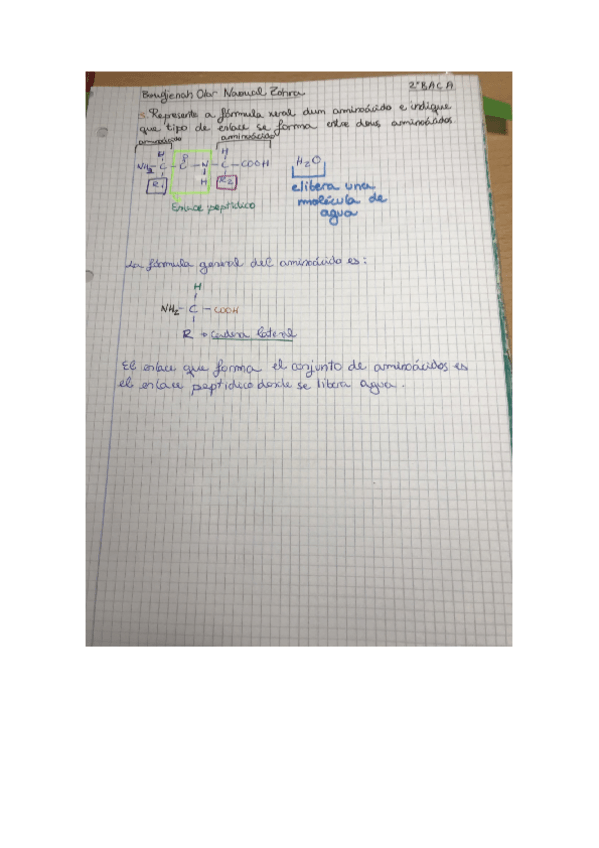 2º BAC A
5. Represente a fórmula xeral dun aminoácido e indique
que tipo de enlace se forma entre dous aminoácidos.
aminoácido aminoácido
H O H
NH2 - C - C - N - C - COOH H2O
R1 H R2
Enlace peptídico
elibera una
molécula de
agua
La fórmula general del aminoácido es:
H
NH2 - C - COOH
R → Cadena lateral
El enlace que forma el conjunto de aminoácidos es
el enlace peptídico donde se libera agua.